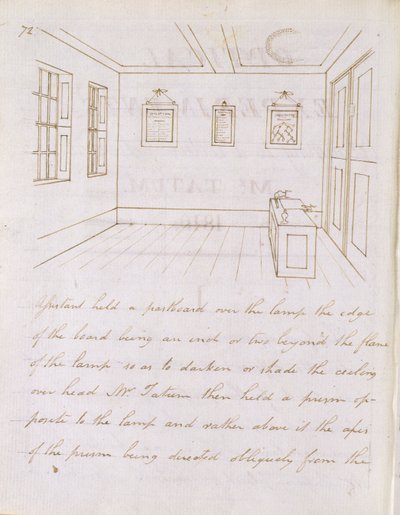 72
Assistant held a pastboard over the lamp the edge
of the board being an inch or two beyond the flame
of the lamp so as to darken or shade the ceeling
over head Mr. Tatum then held a prism op-
posite to the lamp and rather above it the apix
of the prism being directed obliquely from the